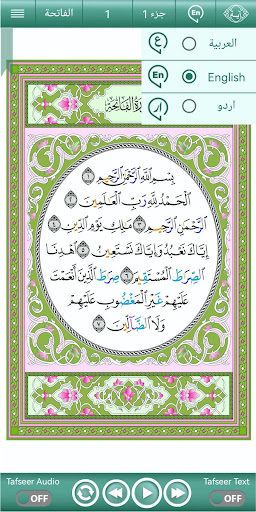 الفاتحة 1 جزء 1 En آية
ع العربية
En English
ار اردو
سُورَةُ الْفَاتِحَةِ
بِسْمِ اللَّهِ الرَّحْمَٰنِ الرَّحِيمِ ١
الْحَمْدُ لِلَّهِ رَبِّ الْعَالَمِينَ ٢
الرَّحْمَٰنِ الرَّحِيمِ ٣ مَالِكِ يَوْمِ الدِّينِ ٤
إِيَّاكَ نَعْبُدُ وَإِيَّاكَ نَسْتَعِينُ ٥ اهْدِنَا
الصِّرَاطَ الْمُسْتَقِيمَ ٦ صِرَاطَ الَّذِينَ أَنْعَمْتَ
عَلَيْهِمْ غَيْرِ الْمَغْضُوبِ عَلَيْهِمْ
وَلَا الضَّالِّينَ ٧
Tafseer Audio Tafseer Text
OFF OFF